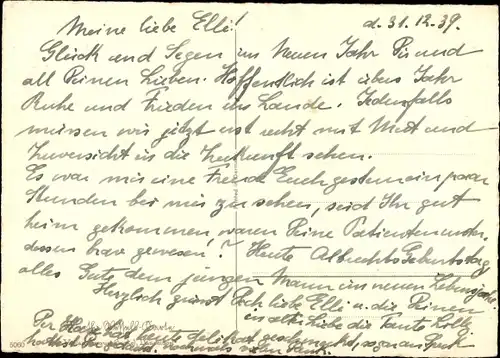 Meine liebe Elli!
d. 31.12.39.
Glück und Segen im Neuen Jahr Dir und
all Deinen Lieben. Hoffentlich ist übers Jahr
Ruhe und Frieden im Lande. Jedenfalls
müssen wir jetzt erst recht mit Mut und
Zuversicht in die Zukunft sehen.
Es war mir eine Freude Euch gestern ein paar
Stunden bei mir zu sehen, seid Ihr gut
heim gekommen, waren Deine Patienten unter
dessen brav gewesen? Heute Albrechts Geburtstag
alles Gute dem jungen Mann im neuen Lebensjahr.
Herzlich grüsst Dich liebe Elli u. die Deinen
in alter Liebe die Tante Lolly
Der hat heute delikat geschmeckt,
nochmals vielen Dank.
5060